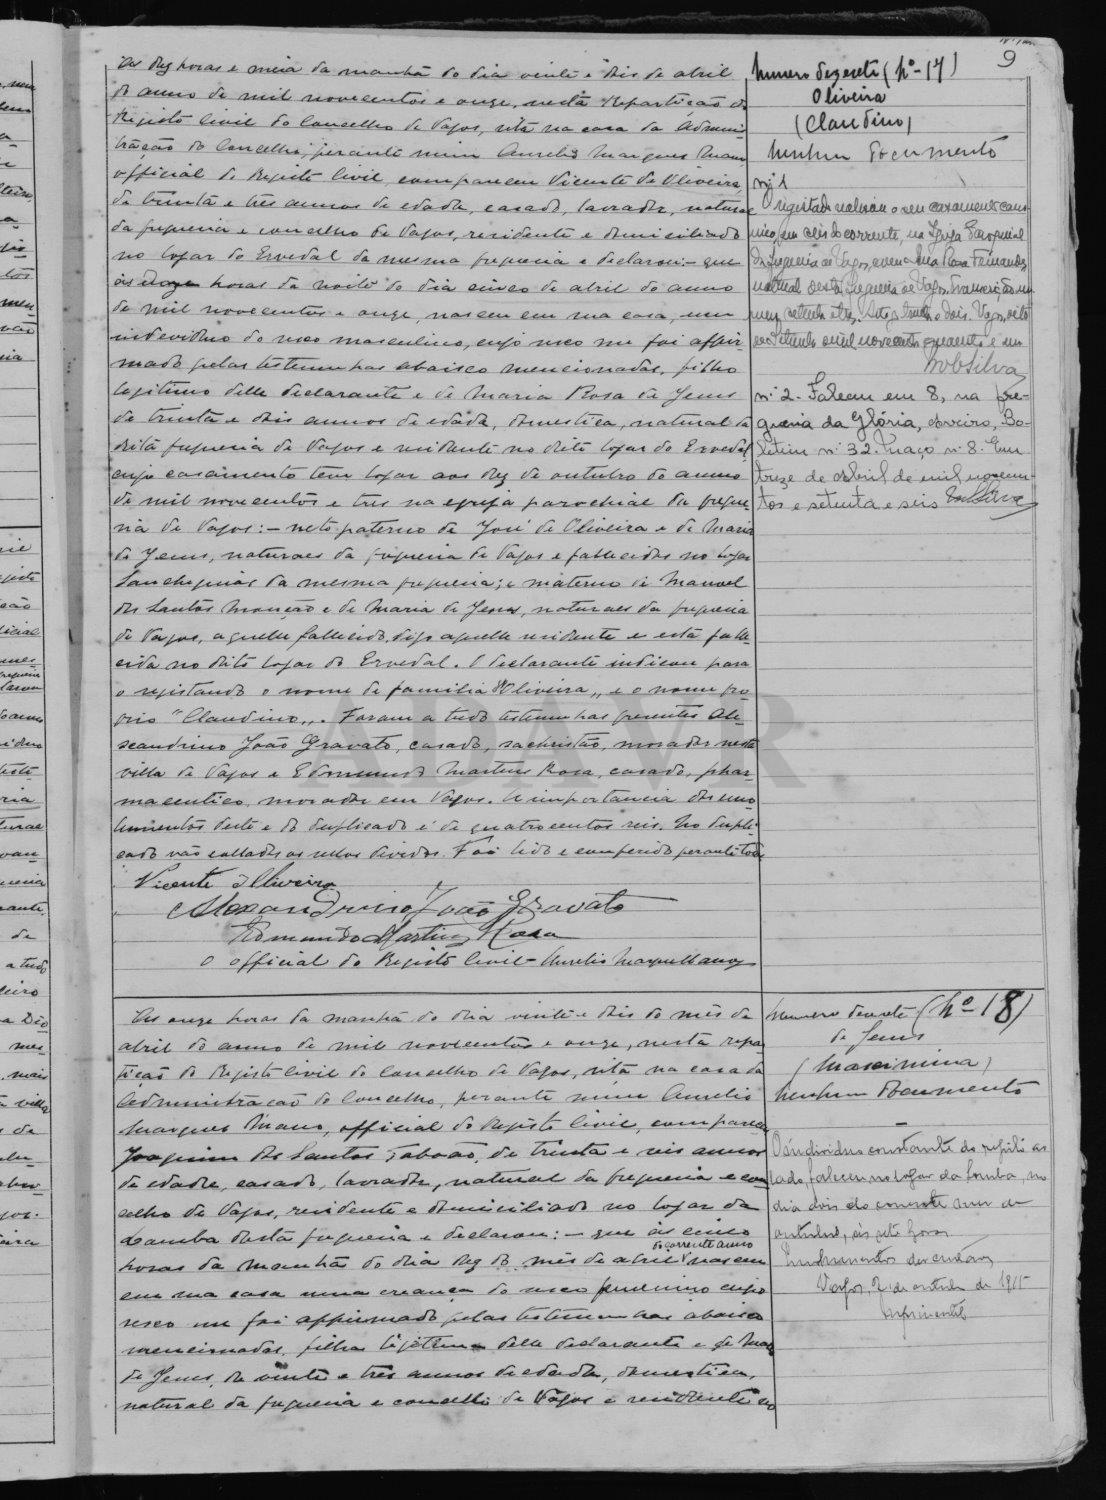 9
As dez horas e meia da manhã do dia vinte e dois de abril
do anno de mil novecentos e onze, nesta Repartição do
Registo Civil do Concelho de Vagos, sita na casa da Adminis-
tração do Concelho, perante mim Aurelio Marques Mano
official do Registo Civil, compareceu Vicente de Oliveira,
de trinta e três annos de edade, casado, lavrador, natural
da freguesia e concelho de Vagos, residente e domiciliado
no logar do Ervedal da mesma freguesia e declarou:- que
ás onze horas da noite do dia cinco de abril do anno
de mil novecentos e onze, nasceu em sua casa, um
individuo do sexo masculino, cujo sexo me foi affir-
mado pelas testemunhas abaixo mencionadas, filho
legitimo delle declarante e de Maria Rosa de Jesus
de trinta e dois annos de edade, domestica, natural da
dita freguesia de Vagos e residente no dito logar do Ervedal,
cujo casamento tem logar aos dez de outubro do anno
de mil novecentos e tres na egreja parochial da fregue-
sia de Vagos:- neto paterno de José de Oliveira e de Maria
de Jesus, naturaes da freguesia de Vagos e fallecidos no logar
Sanchequias da mesma freguesia; e materno de Manuel
dos Santos Monção e de Maria de Jesus, naturaes da freguesia
de Vagos, aquelle fallecido, digo aquelle residente e esta falle-
cida no dito logar do Ervedal. O declarante indicou para
o registando o nome de familia "Oliveira" e o nome pro-
prio "Claudino". Foram a tudo testemunhas presentes Ale-
xandrino João Gravato, casado, sachristão, morador nesta
villa de Vagos e Edmundo Martins Rosa, casado, phar-
maceutico, morador em Vagos. A importancia dos emo-
lumentos deste e do duplicado é de quatrocentos reis. No dupli-
cado vão collados os sellos devidos. Foi lido e conferido perante todos
Vicente d'Oliveira
Alexandrino João Gravato
Edmundo Martins Rosa
O official do Registo Civil - Aurelio Marques Mano
Numero dezesete (Nº-17)
Oliveira
(Claudino)
Nenhum documento
nº 1
O registado celebrou o seu casamento cano-
nico, em seis do corrente, na Igreja Paroquial
da freguesia de Vagos, com Ana Rosa Fernandes
natural desta freguesia de Vagos. Transcrição nu-
mero setenta e tres. Vagos, oito
de mil novecentos e quarenta e um
nº 2 - Faleceu em 8, na fre-
guesia da Glória, Aveiro, Bo-
letim nº 32. Maço nº 8. Em
treze de Abril de mil novecen-
tos e setenta e seis
As onze horas da manhã do dia vinte e dois do mês de
abril do anno de mil novecentos e onze, nesta repar-
tição do Registo Civil do Concelho de Vagos, sita na casa da
Administração do Concelho, perante mim Aurelio
Marques Mano, official do Registo Civil, compareceu
Joaquim dos Santos Taboão, de trinta e seis annos
de edade, casado, lavrador, natural da freguesia e con-
celho de Vagos, residente e domiciliado no logar da
Lomba desta freguesia e declarou:- que ás cinco
horas da manhã do dia dez do mês de abril do corrente anno nasceu
em sua casa uma creança do sexo feminino cujo
sexo me foi affirmado pelas testemunhas abaixo
mencionadas, filha legitima delle declarante e de Maria
de Jesus, de vinte e tres annos de edade, domestica,
natural da freguesia e concelho de Vagos e residente no
Numero dezoito (Nº 18)
de Jesus
(Maximina)
Nenhum documento
O individuo constante do registo ao
lado, faleceu no logar da Lomba, no
dia dois do corrente mez de
outubro, ás sete horas
Vagos, 2 de outubro de 1915
ADAVR